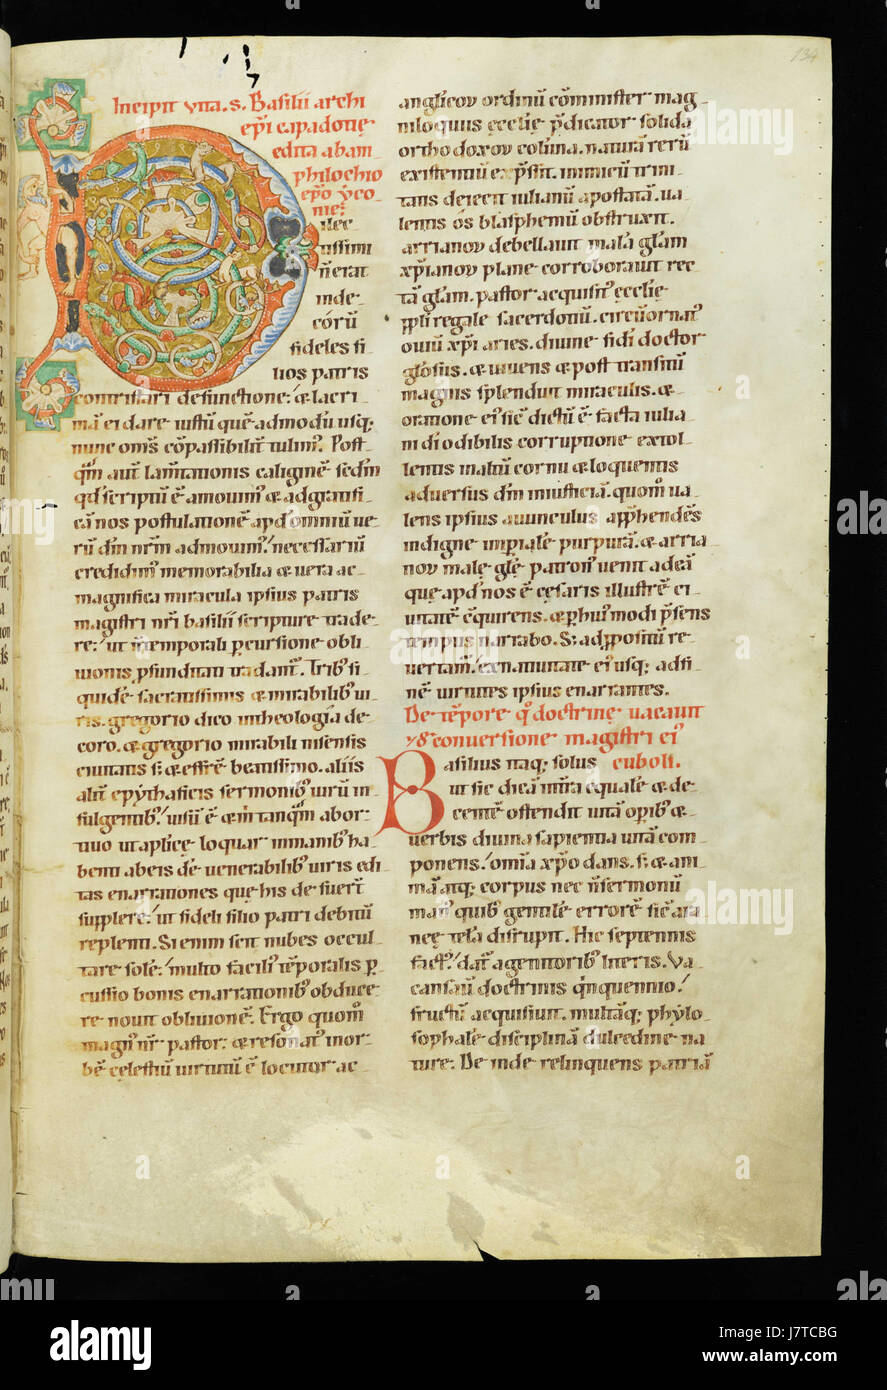 134
Incipit vita. s. Basilii archi
ep̅i capadocie
edita abam
philochio
ep̅o yco
nie:
Nec
tissimi
n̅ erat
inde
córu̅
fideles fi
lios patris
contristari defunctione: & lacri
ma̅ ei dare iustu̅ que̅admodu̅ usq;
nunc om̅s co̅passibilit̅ tulim'. Post
qua̅m aut̅ lam̅tationis caligine̅ sedi̅m
qd̅ scriptu̅ e̅ amouim' & ad gratifi
ca̅ nos postulatione̅ apd' omniu̅ ue
ru̅ dn̅m nr̅m admouim'! necessariu̅
credidim' memorabilia & uera ac
magnifica miracula ipsius patris
magistri nr̅i basilii scripture trade
re: ut in temporali pcursione obli
uionis psunditati tradant̅. Trib; si
quide̅ sacratissimis & mirabilib; ui
ris. gregorio dico in theologia de
coro. & gregorio mirabili nisensis
ciuitatis s; & effre̅ beatissimo. aliis
alit̅ epythaficis sermonib; uiru̅ in
fulgentib;! uisu̅ e̅ & m̅ tanqua̅m abor
tiuo ut aplice loquar inmanib; ha
beati ab eis de uenerabilib; uiris edi
tas enarrationes que his defuer̅t
supplere: ut fideli filio patri debitu̅
repleati. Si enim scit nubes occul
tare sole̅! multo facili' te̅poralis p
cussio bonis enarrationib; obduce
re nouit obliuione̅. Ergo quom̅
magn' nr̅ pastor: & resonat' in or
be̅ celestiu̅ uirtutu̅ e̅ locutor ac
anglicoʀ ordinu̅ co̅minister mag
niloquus ecclie p̅dicator solida
orthodoxoʀ colu̅na. natura̅ reru̅
existentiu̅ ex p̅ssit. inimicu̅ trini
tatis deiecit iulianu̅ apostata̅. ua
lentis os blasphemu̅ obstruxit.
arrianoʀ debellauit mala̅ gl̅am
xp̅ianoʀ plane corroborauit rec
ta̅ gl̅am. pastor acquisit' ecclie
ppl̅i regale sacerdotiu̅. circu̅ornat'
ouiu̅ xp̅i aries. diuine fidi doctor
gl̅osius. & uiuens & post transitu̅
magnis splenduit miraculis. &
oratione ei' sic̅ dictu̅ e̅ facta iulia
ni di odibilis corruptione extol
lentis in altu̅ cornu & loquentis
aduersus dn̅m iniusticia̅. quom̅ ua
lens ipsius auunculus app̅hende̅s
indigne imp̅iale̅ purpura̅. & arria
noʀ male gl̅e patron' uenit ad ea̅
que apd' nos e̅ cesaris illustre̅ ci
uitate̅ e̅quirens. & p huiusmodi p̅sens
tempus narrabo. S; ad p̅positu̅ re
uertam'! ex natiuitate ei' usq; ad fi
ne̅ uirtutes ipsius enarrantes.
De te̅pore q̊ doctrine uacauit
& conuersione magistri ei'
euboli.
Basilius itaq; solus
ut sic dica̅ in t̅ra equale & de
cente̅ ostendit uita̅ opib; &
uerbis diuina sapientia uita̅ com
ponens! om̅ia xp̅o dans. s; & ani
ma̅ atq; corpus nec n̅ sermonu̅
mat' quib; gentile̅ errore̅ sic̅ ara
nee tela̅ disrupit. Hic septennis
fact'! dat' a genitorib; litteris. Va
cansau̅ doctrinis qinquennio!
fructu̅ acquisiuit. multaq; phylo
sophale̅ disciplina̅ dulcedine na
ture. De inde relinquens patria̅
alamy
Image ID: J7TCBG
www.alamy.com